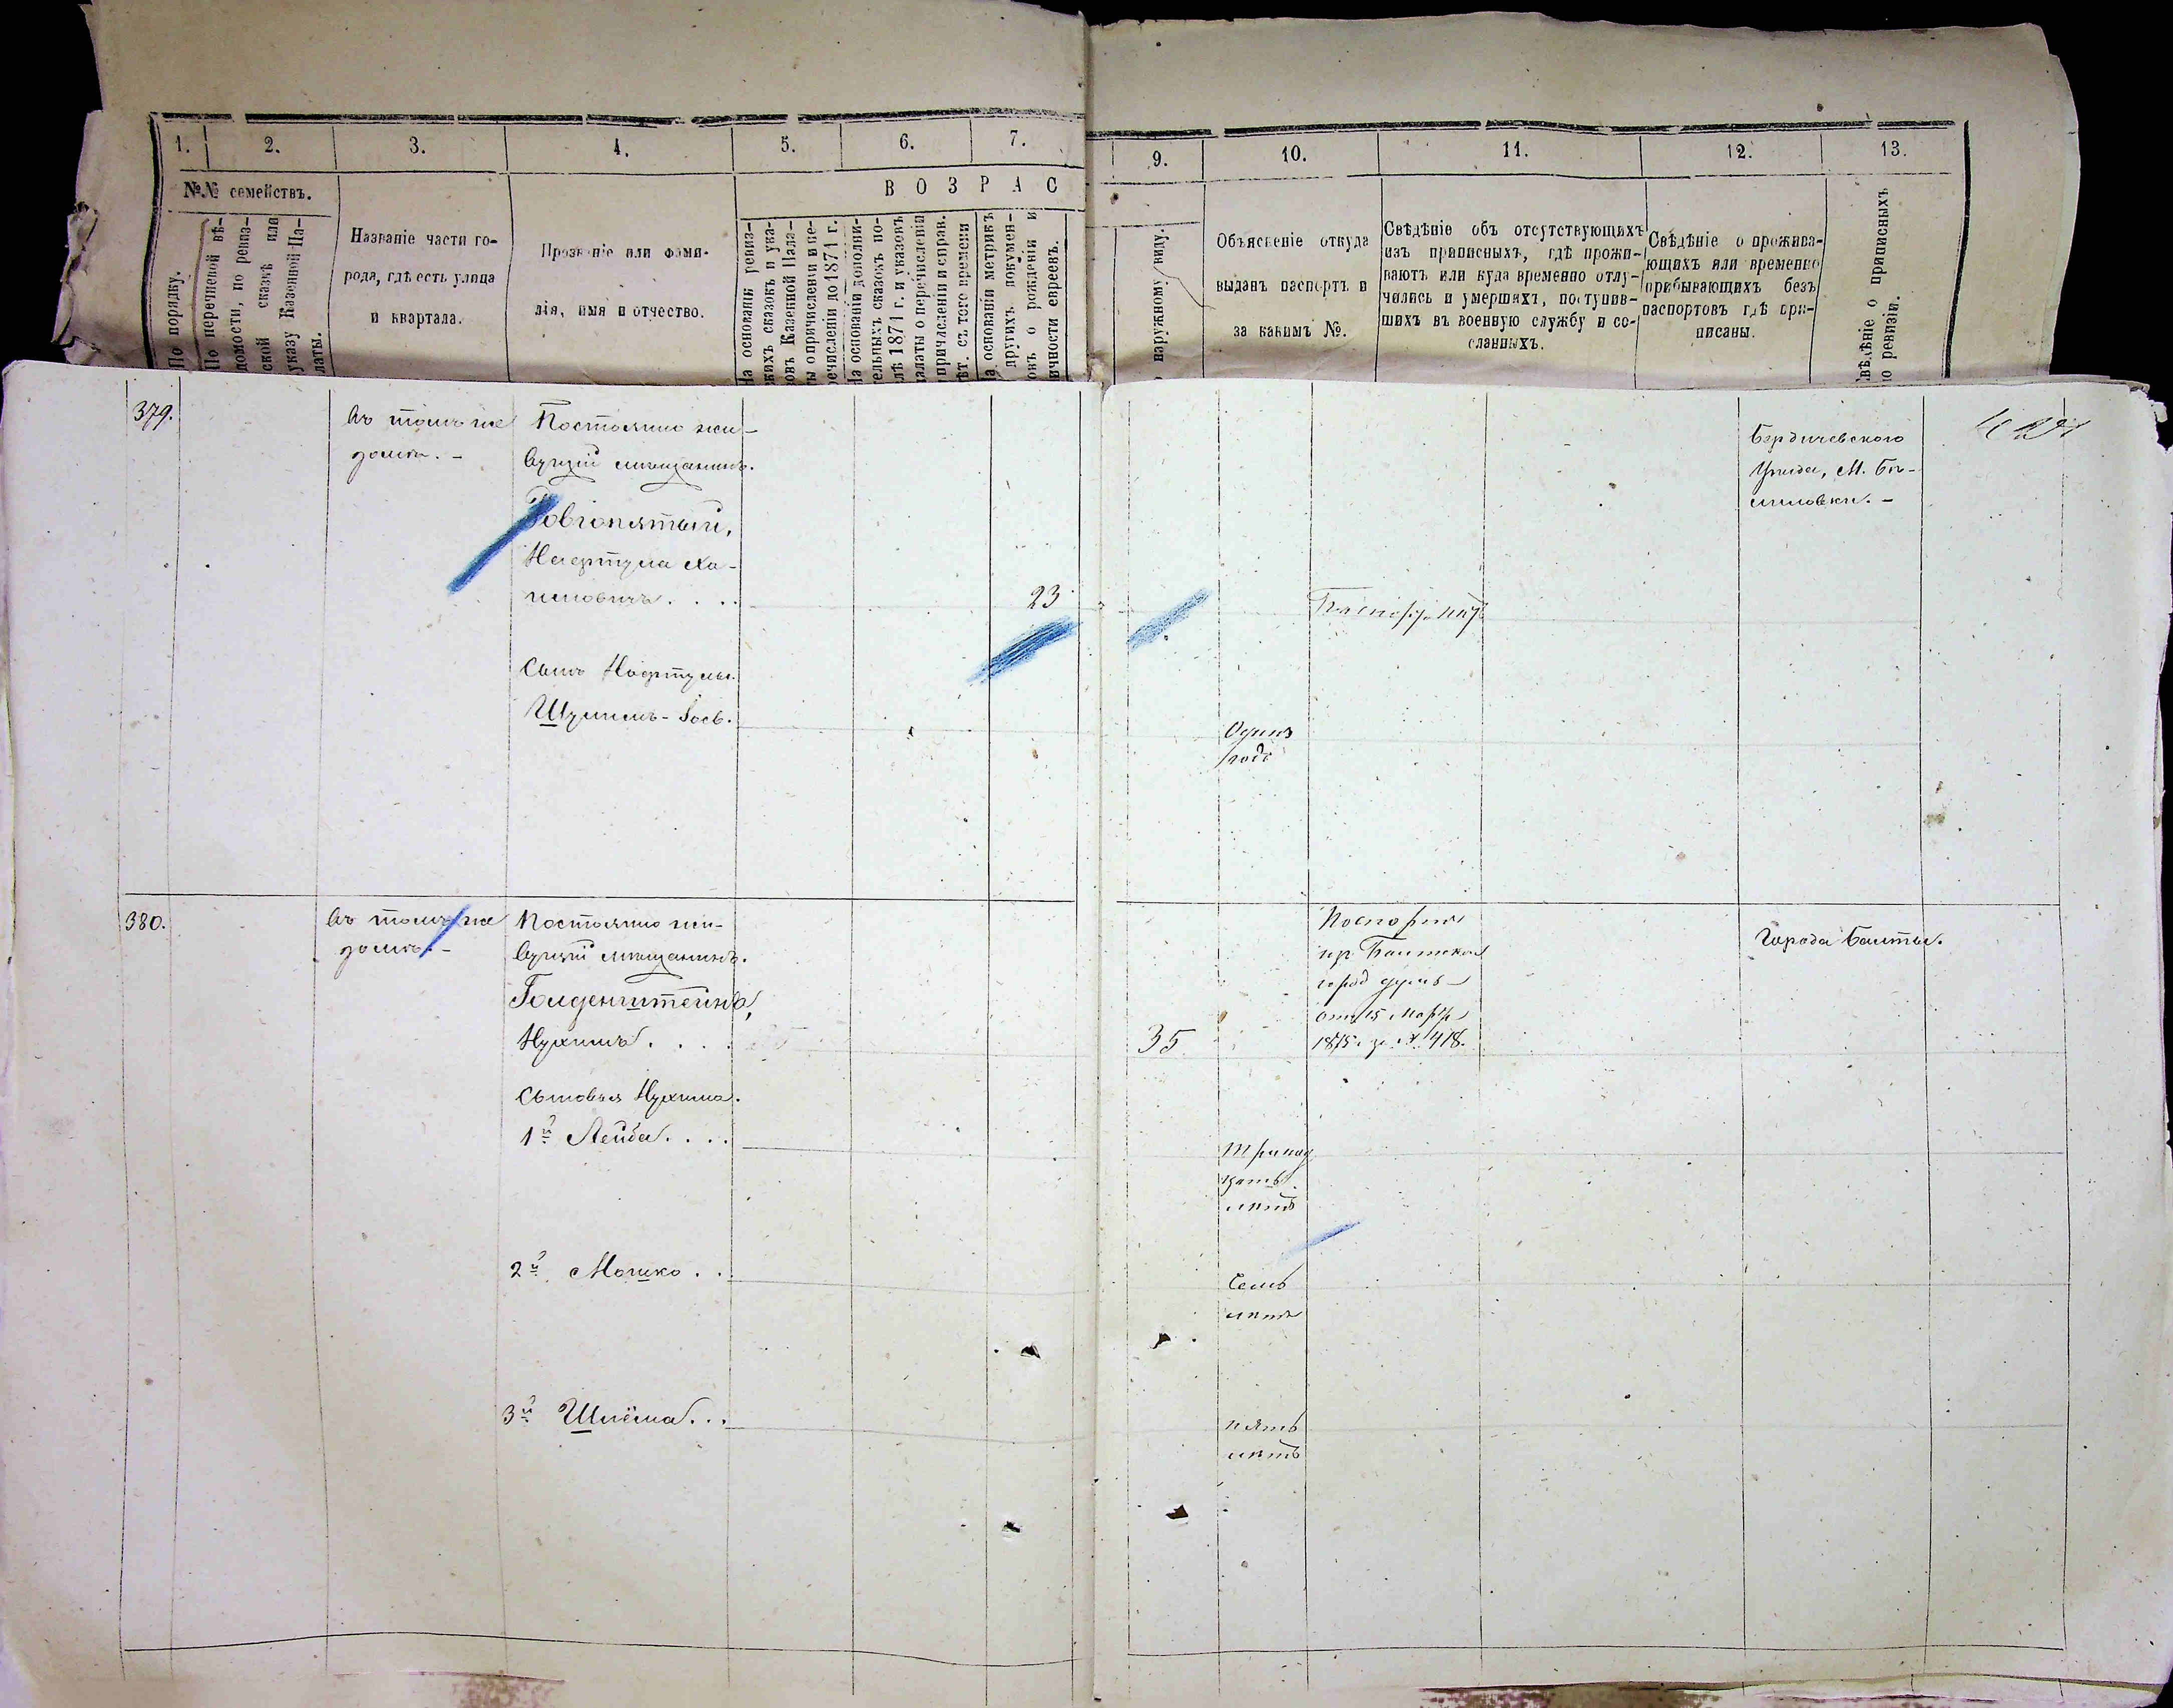 1. 2. 3. 4. 5. 6. 7.
№№ семействъ.
В О З Р А С
По порядку.
По перечневой вѣ-
домости, по ревиз-
ской сказкѣ или
указу Казенной Па-
латы.
Названіе части го-
рода, гдѣ есть улица
и квартала.
Прозваніе или фами-
лія, имя и отчество.
На основаніи ревиз-
скихъ сказокъ и ука-
зовъ Казенной Пала-
ты о причисленіи и пе-
речисленіи до 1871 г.
На основаніи дополни-
тельныхъ сказокъ по-
слѣ 1871 г. и указовъ
Палаты о перечисленіи
и причисленіи и справ.
лѣт. съ того времени
На основаніи метрикъ
и другихъ докумен-
товъ о рожденіи и
личности евреевъ.
9. 10. 11. 12. 13.
наружному виду.
Объясненіе откуда
выданъ паспортъ и
за какимъ №.
Свѣдѣніе объ отсутствующихъ
изъ приписныхъ, гдѣ прожи-
ваютъ или куда временно отлу-
чились и умершихъ, поступив-
шихъ въ военную службу и со-
сланныхъ.
Свѣдѣніе о прожива-
ющихъ или временно
прибывающихъ безъ
паспортовъ гдѣ при-
писаны.
Свѣдѣніе о приписныхъ
по ревизіи.
379.
Въ томъ же
домѣ. -
Постоянно жи-
вущій мѣщанинъ.
Довгопятый,
Нафтула Ха-
имовичъ. . . .
23
Сынъ Нафтулы.
Шулимъ-Іосъ.
Одинъ
годъ
Бердичевского
Уѣзда, М. Бѣ-
лиловки. -
380.
Въ томъ же
домѣ. -
Постоянно жи-
вущій мѣщанинъ.
Голденштейнъ,
Нухимъ. . . .
35
Паспортъ
изъ Балтской
город думы
отъ 15 Марта
1875 г. за № 418.
Города Балты.
Сыновья Нухима.
1й Лейба. . . .
Тринад
цать
лѣтъ
2й Мошко. . .
Семь
лѣтъ
3й Шлёма. . .
пять
лѣтъ